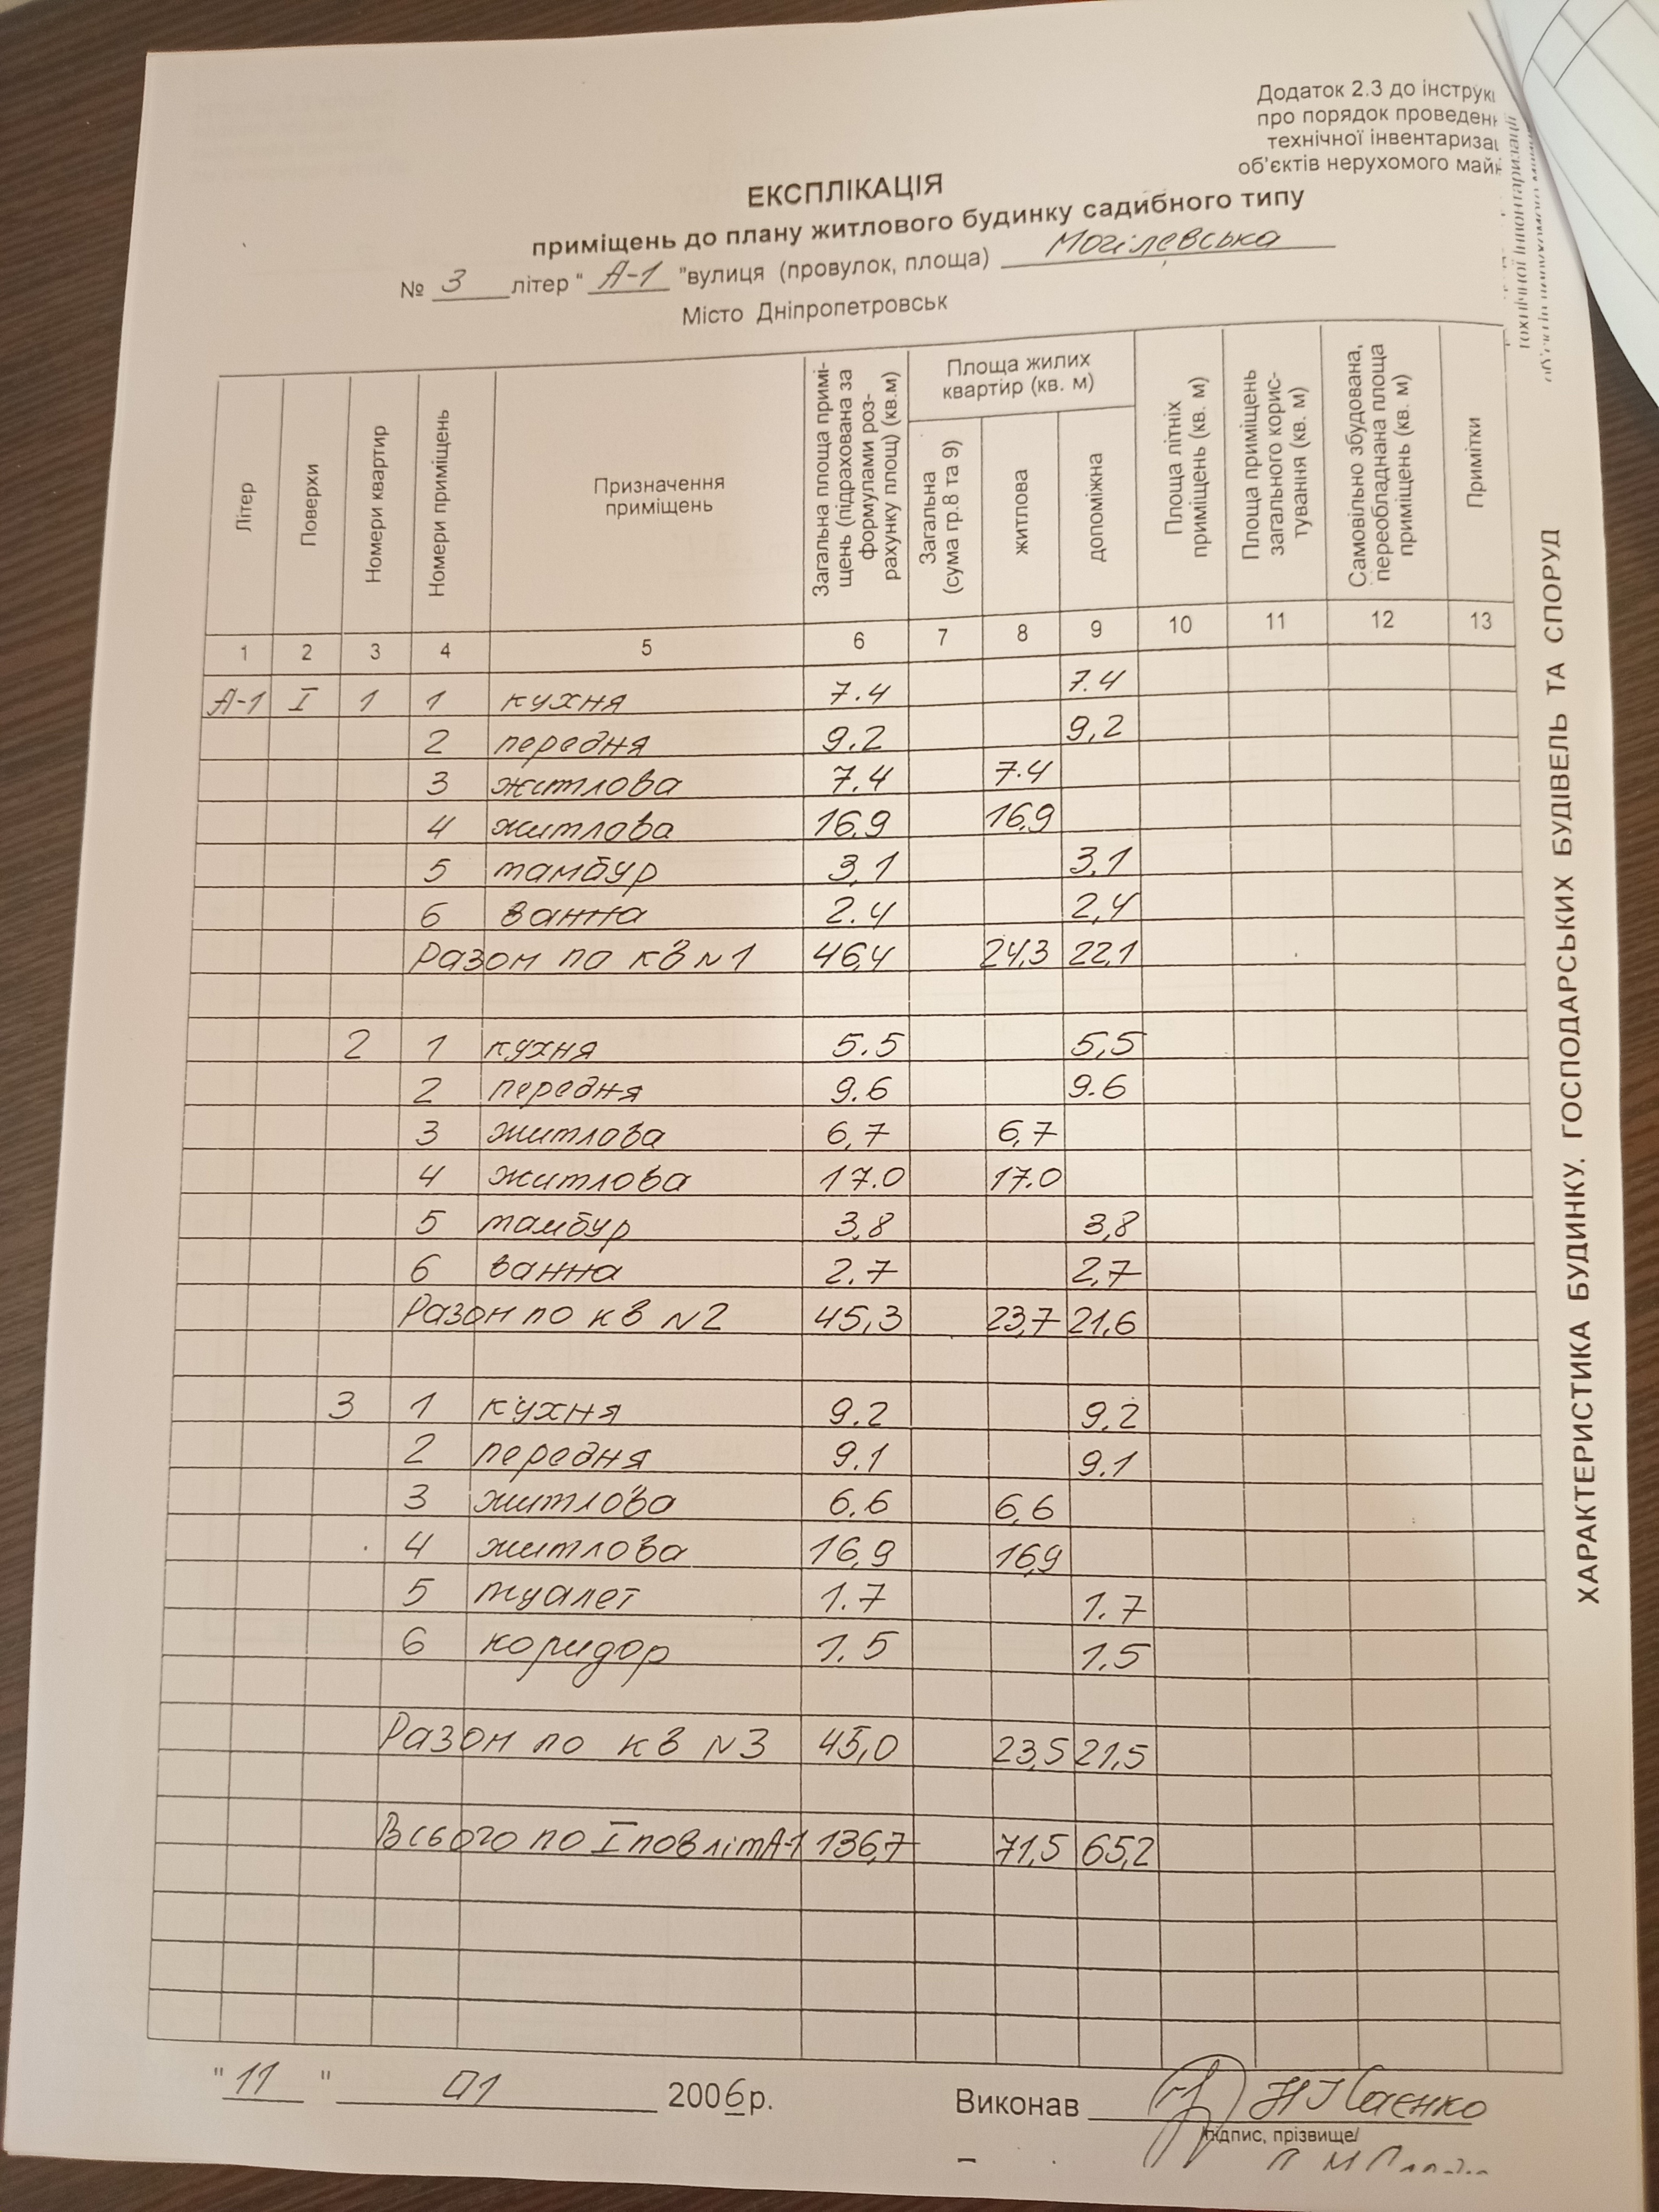 Додаток 2.3 до інструкі
про порядок проведенн
технічної інвентариза
об'єктів нерухомого май
ЕКСПЛІКАЦІЯ
приміщень до плану житлового будинку садибного типу
№ 3 літер " А-1 " вулиця (провулок, площа) Могілевська
Місто Дніпропетровськ
Літер
Поверхи
Номери квартир
Номери приміщень
Призначення
приміщень
Загальна площа примі-
щень (підрахована за
формулами роз-
рахунку площ) (кв.м)
Площа жилих
квартир (кв. м)
Загальна
(сума гр.8 та 9)
житлова
допоміжна
Площа літніх
приміщень (кв. м)
Площа приміщень
загального корис-
тування (кв. м)
Самовільно збудована,
переобладнана площа
приміщень (кв. м)
Примітки
1 2 3 4 5 6 7 8 9 10 11 12 13
А-1 I 1 1 кухня 7.4 7.4
2 передня 9.2 9,2
3 житлова 7.4 7.4
4 житлова 16,9 16,9
5 тамбур 3,1 3,1
6 ванна 2.4 2,4
Разом по кв N1 46,4 24,3 22,1
2 1 кухня 5.5 5,5
2 передня 9.6 9.6
3 житлова 6,7 6,7
4 житлова 17.0 17.0
5 тамбур 3,8 3,8
6 ванна 2.7 2,7
Разом по кв N2 45,3 23,7 21,6
3 1 кухня 9.2 9.2
2 передня 9.1 9.1
3 житлова 6.6 6,6
4 житлова 16,9 16,9
5 туалет 1.7 1.7
6 коридор 1.5 1,5
Разом по кв N3 45,0 23,5 21,5
Всього по I пов літ А-1 136,7 71,5 65,2
" 11 " 01 2006 р.
Виконав
підпис, прізвище/
ХАРАКТЕРИСТИКА БУДИНКУ, ГОСПОДАРСЬКИХ БУДІВЕЛЬ ТА СПОРУД